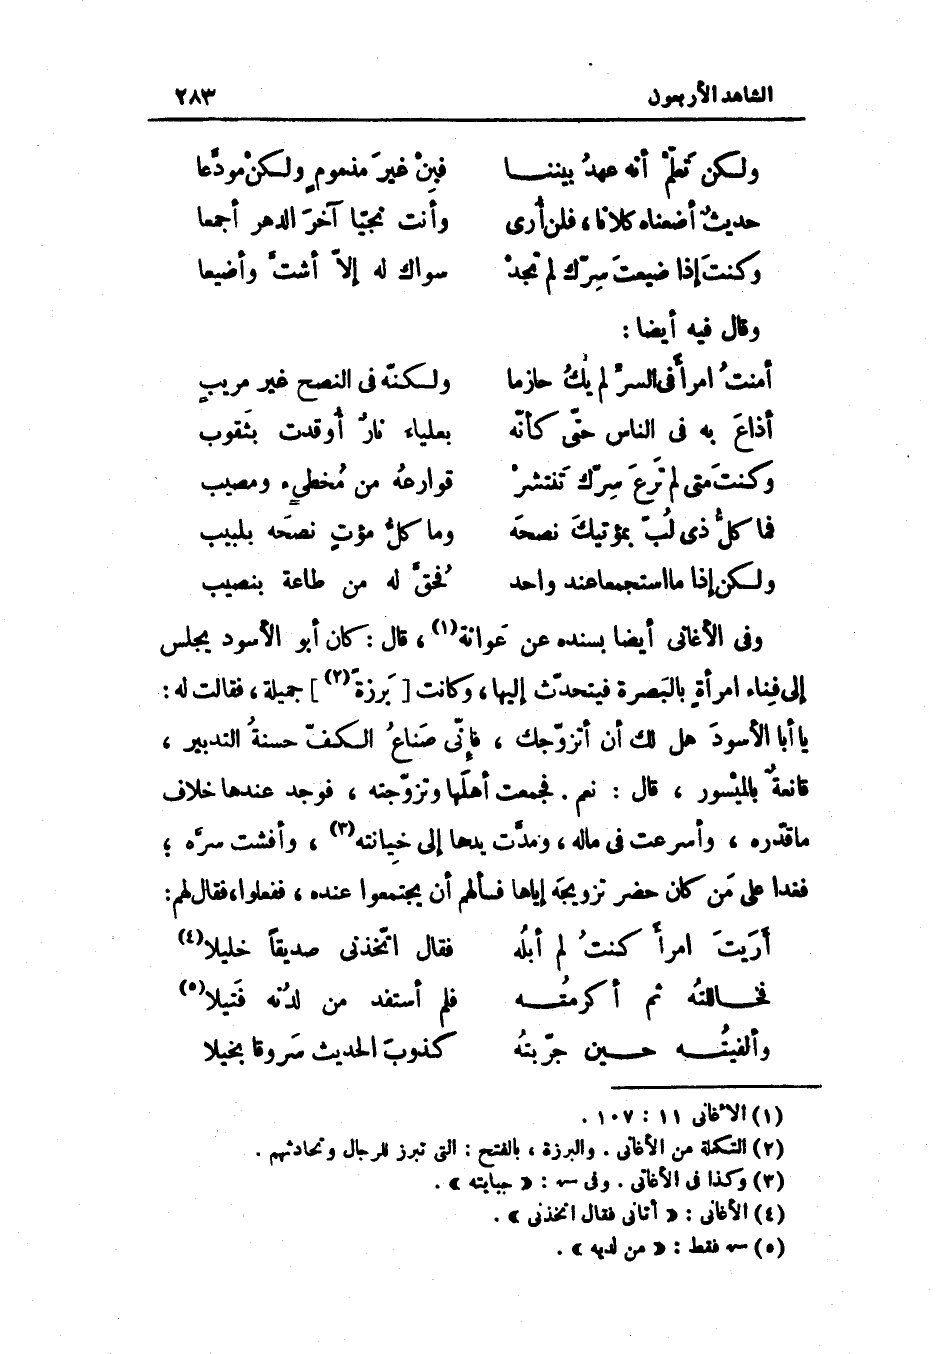 الشاهد الأربعون ٢٨٣
ولكن تعلّمْ أنه عهدُ بيننا فبِنْ غيرَ مذمومٍ ولكنْ مودَّعا
حديثٌ أضعناه كلانا، فلن أُرى وأنت نجيّا آخرَ الدهر أجمعا
وكنتَ إذا ضيعتَ سِرّك لم تجدْ سواك له إلاّ أشتَّ وأضيعا
وقال فيه أيضا :
أمنتُ امرأً فى السرّ لم يكُ حازما ولكنّه فى النصح غير مريبِ
أذاعَ به فى الناس حتّى كأنّه بعلياء نارٌ أُوقدت بثَقوب
وكنتَ متى لم تَرعَ سِرّك تَنتشرْ قوارعهُ من مُخطىء ومصيب
فما كلُّ ذى لُبّ بمؤتيكَ نصحَه وما كلُّ مؤتٍ نصحَه بلبيب
ولكن إذا ما استجمعا عند واحد فُحقَّ له من طاعة بنصيب
وفى الأغانى أيضا بسنده عن عَوانة(١) ، قال : كان أبو الأسود يجلس
إلى فِناء امرأةٍ بالبَصرة فيتحدّث إليها، وكانت [ بَرزةً(٢) ] جميلة ، فقالت له :
يا أبا الأسودَ هل لك أن أتزوّجك ، فإنّى صَناعُ الكفّ حسنةُ التدبير ،
قانعةٌ بالميْسور ، قال : نعم . فجمعت أهلَها وتزوّجته ، فوجد عندها خلاف
ماقدّره ، وأسرعت فى ماله ، ومدَّت يدها إلى خِيانته(٣) ، وأفشت سرَّه ؛
فغدا على مَن كان حضر تزويجَه إياها فسألهم أن يجتمعوا عنده ، ففعلوا، فقال لهم:
أَرَيتَ امرأً كنتُ لم أبلُه فقال اتّخذنى صديقاً خليلا(٤)
فخاللتُه ثم أكرمتُه فلم أستفد من لدُنْه فَتيلا(٥)
وألفيتُه حين جرّبتُه كذوبَ الحديث سَروقا بخيلا
(١) الأغانى ١١ : ١٠٧ .
(٢) التكملة من الأغانى . والبرزة ، بالفتح : التى تبرز للرجال وتحادثهم .
(٣) وكذا فى الأغانى . وفى سه : « جبايته » .
(٤) الأغانى : « أتانى فقال اتخذنى » .
(٥) سه فقط : « من لديه » .